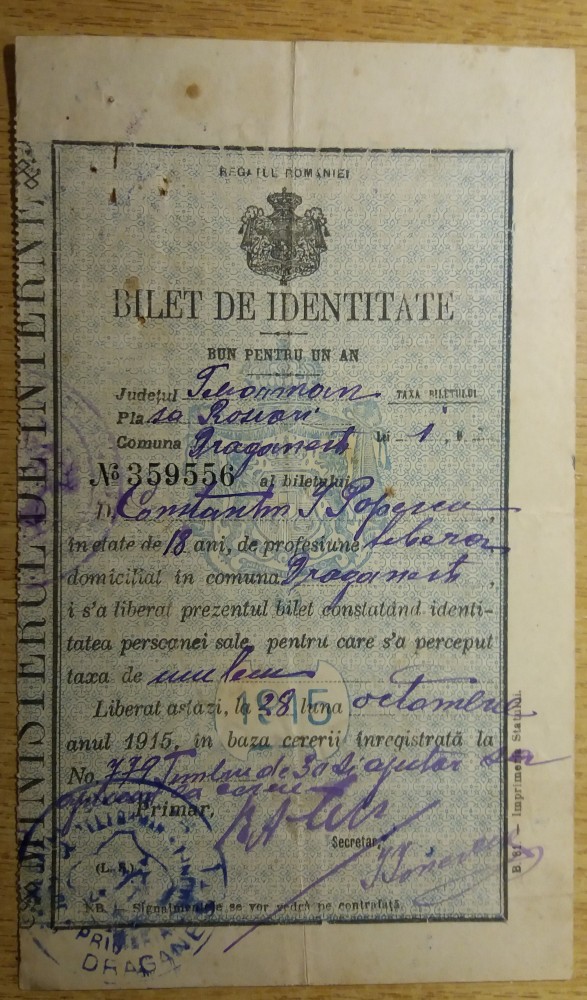 REGATUL ROMÂNIEI
BILET DE IDENTITATE
BUN PENTRU UN AN
Județul Teleorman TAXA BILETULUI
Plasa
Comuna Draganesti Lei 1
№ 359556 al biletului
D. Constantin I Popescu,
în etate de 18 ani, de profesiune libera
domiciliat în comuna Draganesti,
i s'a liberat prezentul bilet constatând identi-
tatea persoanei sale, pentru care s'a perceput
taxa de unu leu
Liberat astăzi, la 28 luna octombrie
1915
anul 1915, în baza cererii înregistrată la
No. 779 Timbru de 30 si ajutor s'a
aplicat la cerere
Primar,
Secretar,
(L. S.)
NB. — Signalmentele se vor vedea pe contrafață.
MINISTERUL DE INTERNE
— Imprimeria Statului.
DRAGANE